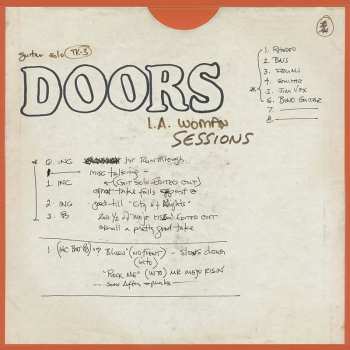 guitar solo TK-3
DOORS
L.A. WOMAN
SESSIONS
1.
2. BASS
3. DRUMS
4. GUITAR
5. JIM VOX
6. BEND GUITAR
7
8
0 INC for Runthrough
misc talking -
1 INC (GUIT SOLO EDITED OUT)
take falls apart @
2 INC good till "City of Nights"
3 2nd 1/2 of MOJO RISIN EDITED OUT
a pretty good take
1 BLUES - SLOWS DOWN
(INTO)
"ROCK ME" (INTO) MR MOJO RISIN'